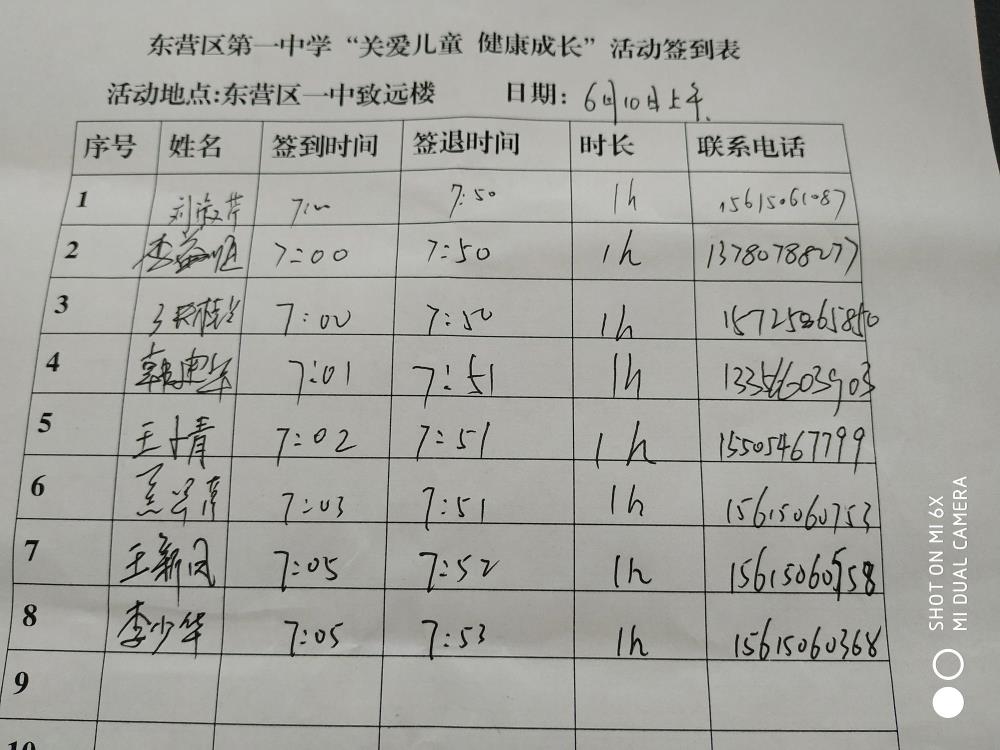 东营区第一中学“关爱儿童 健康成长”活动签到表
活动地点:东营区一中致远楼 日期: 6月10日上午.
序号 姓名 签到时间 签退时间 时长 联系电话
1 刘淑芹 7:00 7:50 1h 15615061087
2 李益恒 7:00 7:50 1h 13780788077
3 7:00 7:50 1h
4 韩建军 7:01 7:51 1h
5 王十青 7:02 7:51 1h 15505467799
6 7:03 7:51 1h 15615060753
7 王新凤 7:05 7:52 1h 15615060958
8 李少华 7:05 7:53 1h 15615060368
9
10
SHOT ON MI 6X
MI DUAL CAMERA